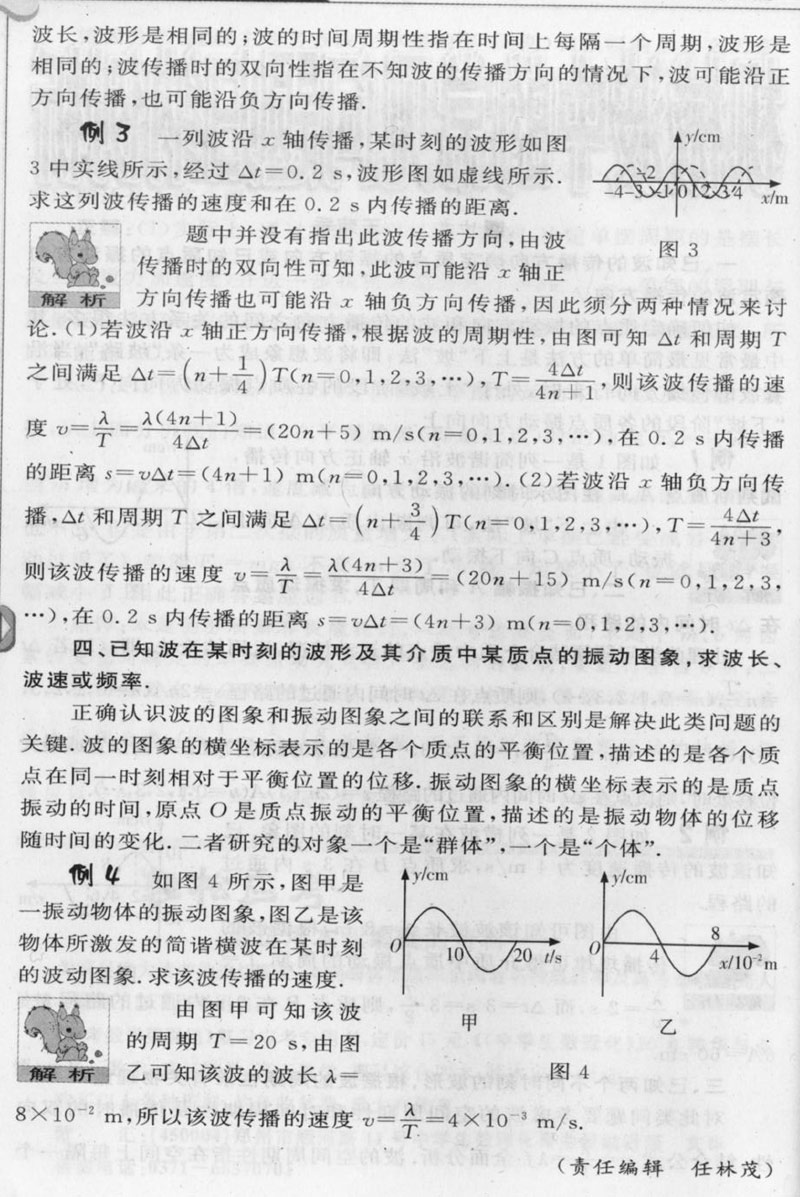 波长,波形是相同的;波的时间周期性指在时间上每隔一个周期,波形是
相同的;波传播时的双向性指在不知波的传播方向的情况下,波可能沿正
方向传播,也可能沿负方向传播.
例3 一列波沿 x 轴传播,某时刻的波形如图
3 中实线所示,经过 Δt=0.2 s,波形图如虚线所示.
求这列波传播的速度和在 0.2 s 内传播的距离.
y/cm
2
-4-3 -1 0 1 2 3 4 x/m
图 3
解析
题中并没有指出此波传播方向,由波
传播时的双向性可知,此波可能沿 x 轴正
方向传播也可能沿 x 轴负方向传播,因此须分两种情况来讨
论.(1)若波沿 x 轴正方向传播,根据波的周期性,由图可知 Δt 和周期 T
之间满足 Δt=(n+1/4)T(n=0,1,2,3,…),T=4Δt/(4n+1),则该波传播的速
度 v=λ/T=λ(4n+1)/4Δt=(20n+5) m/s(n=0,1,2,3,…),在 0.2 s 内传播
的距离 s=vΔt=(4n+1) m(n=0,1,2,3,…).(2)若波沿 x 轴负方向传
播,Δt 和周期 T 之间满足 Δt=(n+3/4)T(n=0,1,2,3,…),T=4Δt/(4n+3),
则该波传播的速度 v=λ/T=λ(4n+3)/4Δt=(20n+15) m/s(n=0,1,2,3,
…),在 0.2 s 内传播的距离 s=vΔt=(4n+3) m(n=0,1,2,3,…).
四、已知波在某时刻的波形及其介质中某质点的振动图象,求波长、
波速或频率.
正确认识波的图象和振动图象之间的联系和区别是解决此类问题的
关键.波的图象的横坐标表示的是各个质点的平衡位置,描述的是各个质
点在同一时刻相对于平衡位置的位移.振动图象的横坐标表示的是质点
振动的时间,原点 O 是质点振动的平衡位置,描述的是振动物体的位移
随时间的变化.二者研究的对象一个是“群体”,一个是“个体”.
例4 如图 4 所示,图甲是
一振动物体的振动图象,图乙是该
物体所激发的简谐横波在某时刻
的波动图象.求该波传播的速度.
解析
由图甲可知该波
的周期 T=20 s,由图
乙可知该波的波长 λ=
y/cm
O 10 20 t/s
甲
y/cm
O 4 8 x/10⁻²m
乙
图 4
8×10⁻² m,所以该波传播的速度 v=λ/T=4×10⁻³ m/s.
(责任编辑 任林茂)